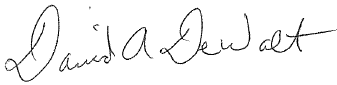 David A DeWalt